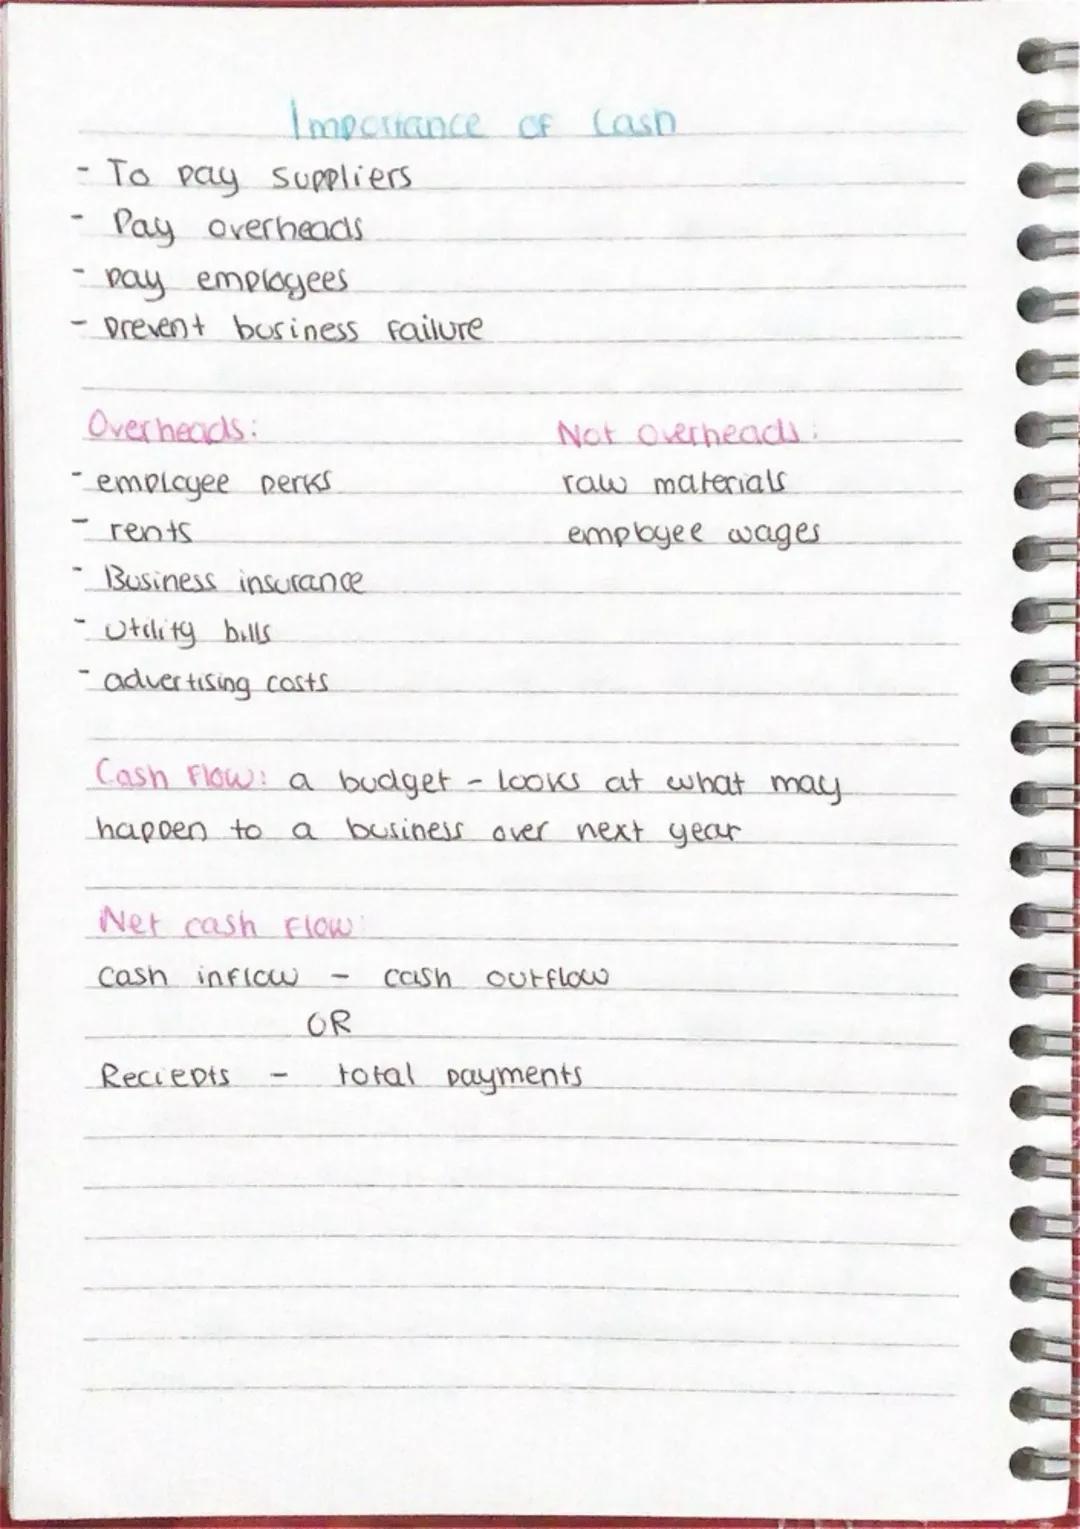 Importance of Cash
- To pay suppliers
- Pay overheads
- pay employees
- prevent business failure
Overheads: Not overheads:
- employee perks raw materials
- rents employee wages
- Business insurance
- utility bills
- advertising costs
Cash Flow: a budget - looks at what may
happen to a business over next year
Net cash flow:
cash inflow - cash outflow
OR
Reciepts - total payments